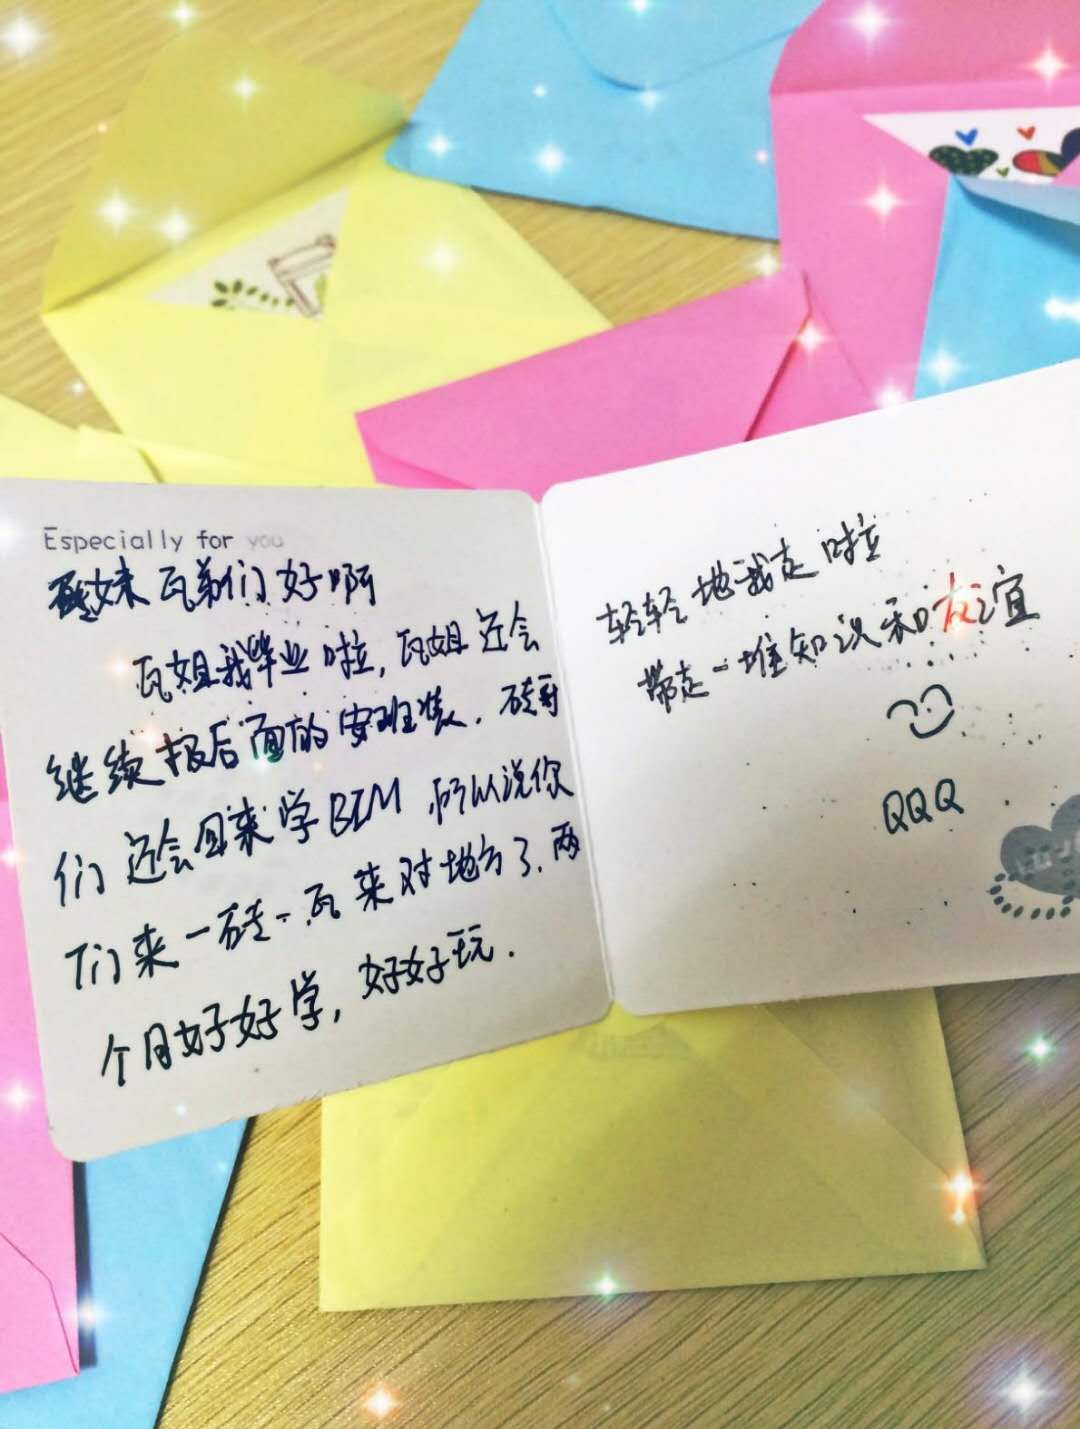 Especially for you
砖妹瓦弟们好啊
瓦姐我毕业啦,瓦姐还会
继续报后面的安班装.砖哥
们还会回来学BIM 所以说你
们来一砖一瓦来对地方了.两
个月好好学,好好玩.
轻轻地我走啦
带走一堆知识和友谊
QQQ